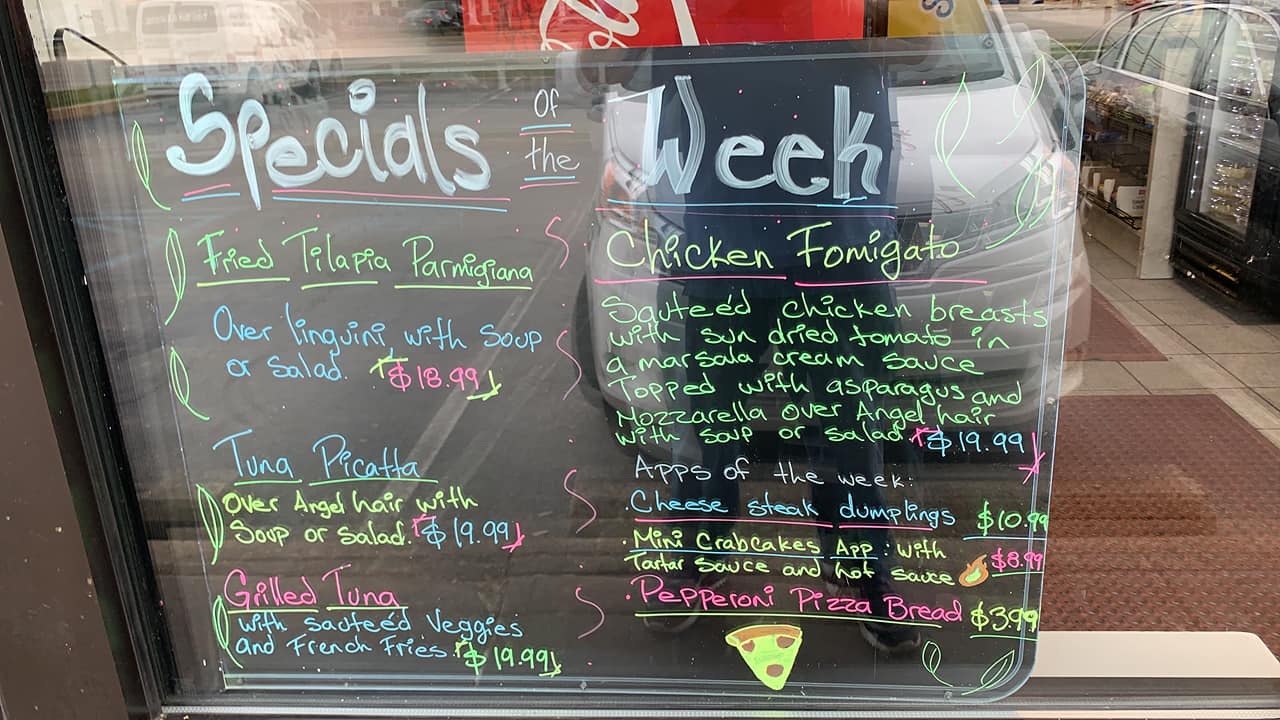 Specials of the Week
Fried Tilapia Parmigiana
Over linguini, with Soup
or Salad. $18.99
Tuna Picatta
Over Angel hair with
Soup or Salad. $19.99
Grilled Tuna
with sauteéd Veggies
and French Fries. $19.99
Chicken Fomigato
Sauteéd chicken breasts
with sun dried tomato in
a marsala cream sauce
Topped with asparagus and
Mozzarella over Angel hair
with soup or salad. $19.99
Apps of the week:
. Cheese steak dumplings $10.99
. Mini Crabcakes App: with
Tartar Sauce and hot sauce $8.99
. Pepperoni Pizza Bread $3.99